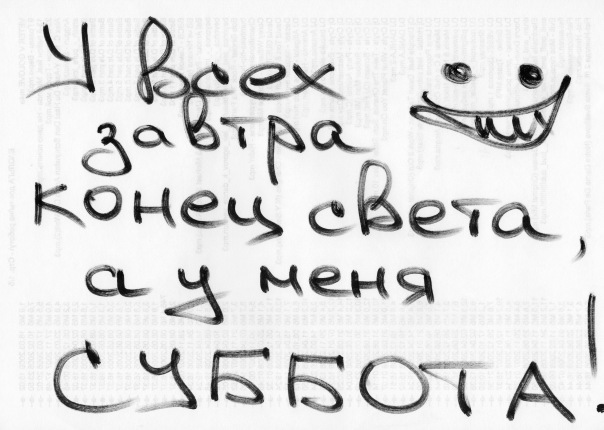 У всех
завтра
конец света,
а у меня
СУББОТА!